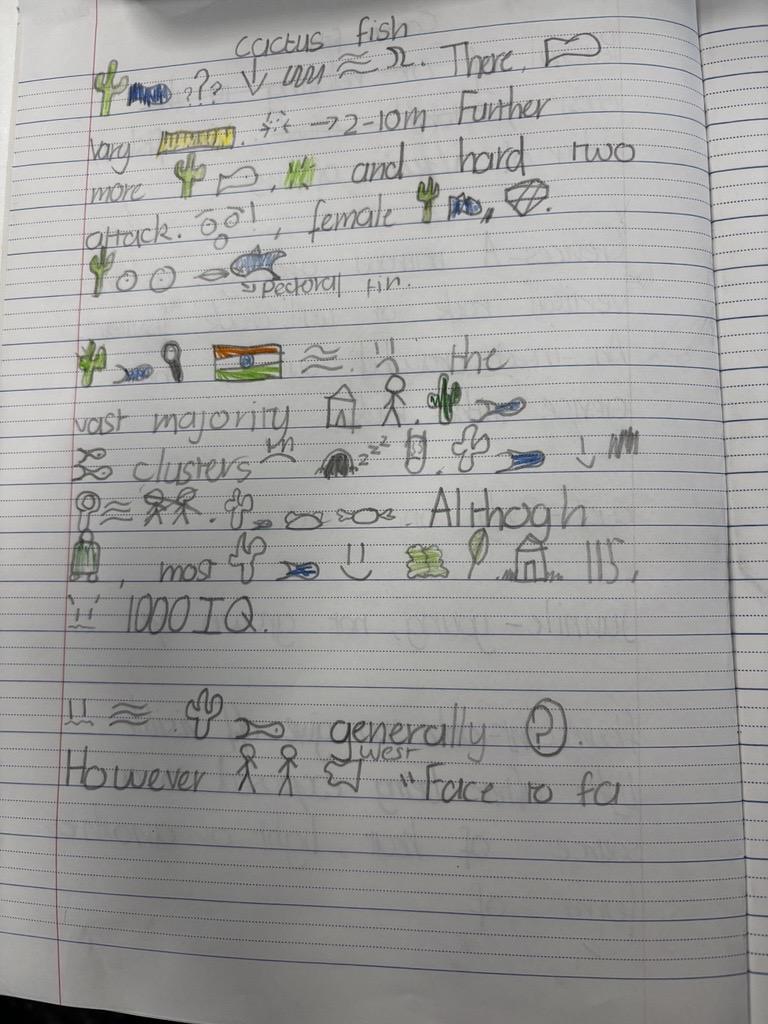 cactus fish
??? There,
Vary . → 2-10m Further
more , and hard two
attack. , female , .
pectoral fin.
the
vast majority
clusters zzz
. Althogh
, most 115,
1000 IQ.
generally ?.
west
However "Face to fa